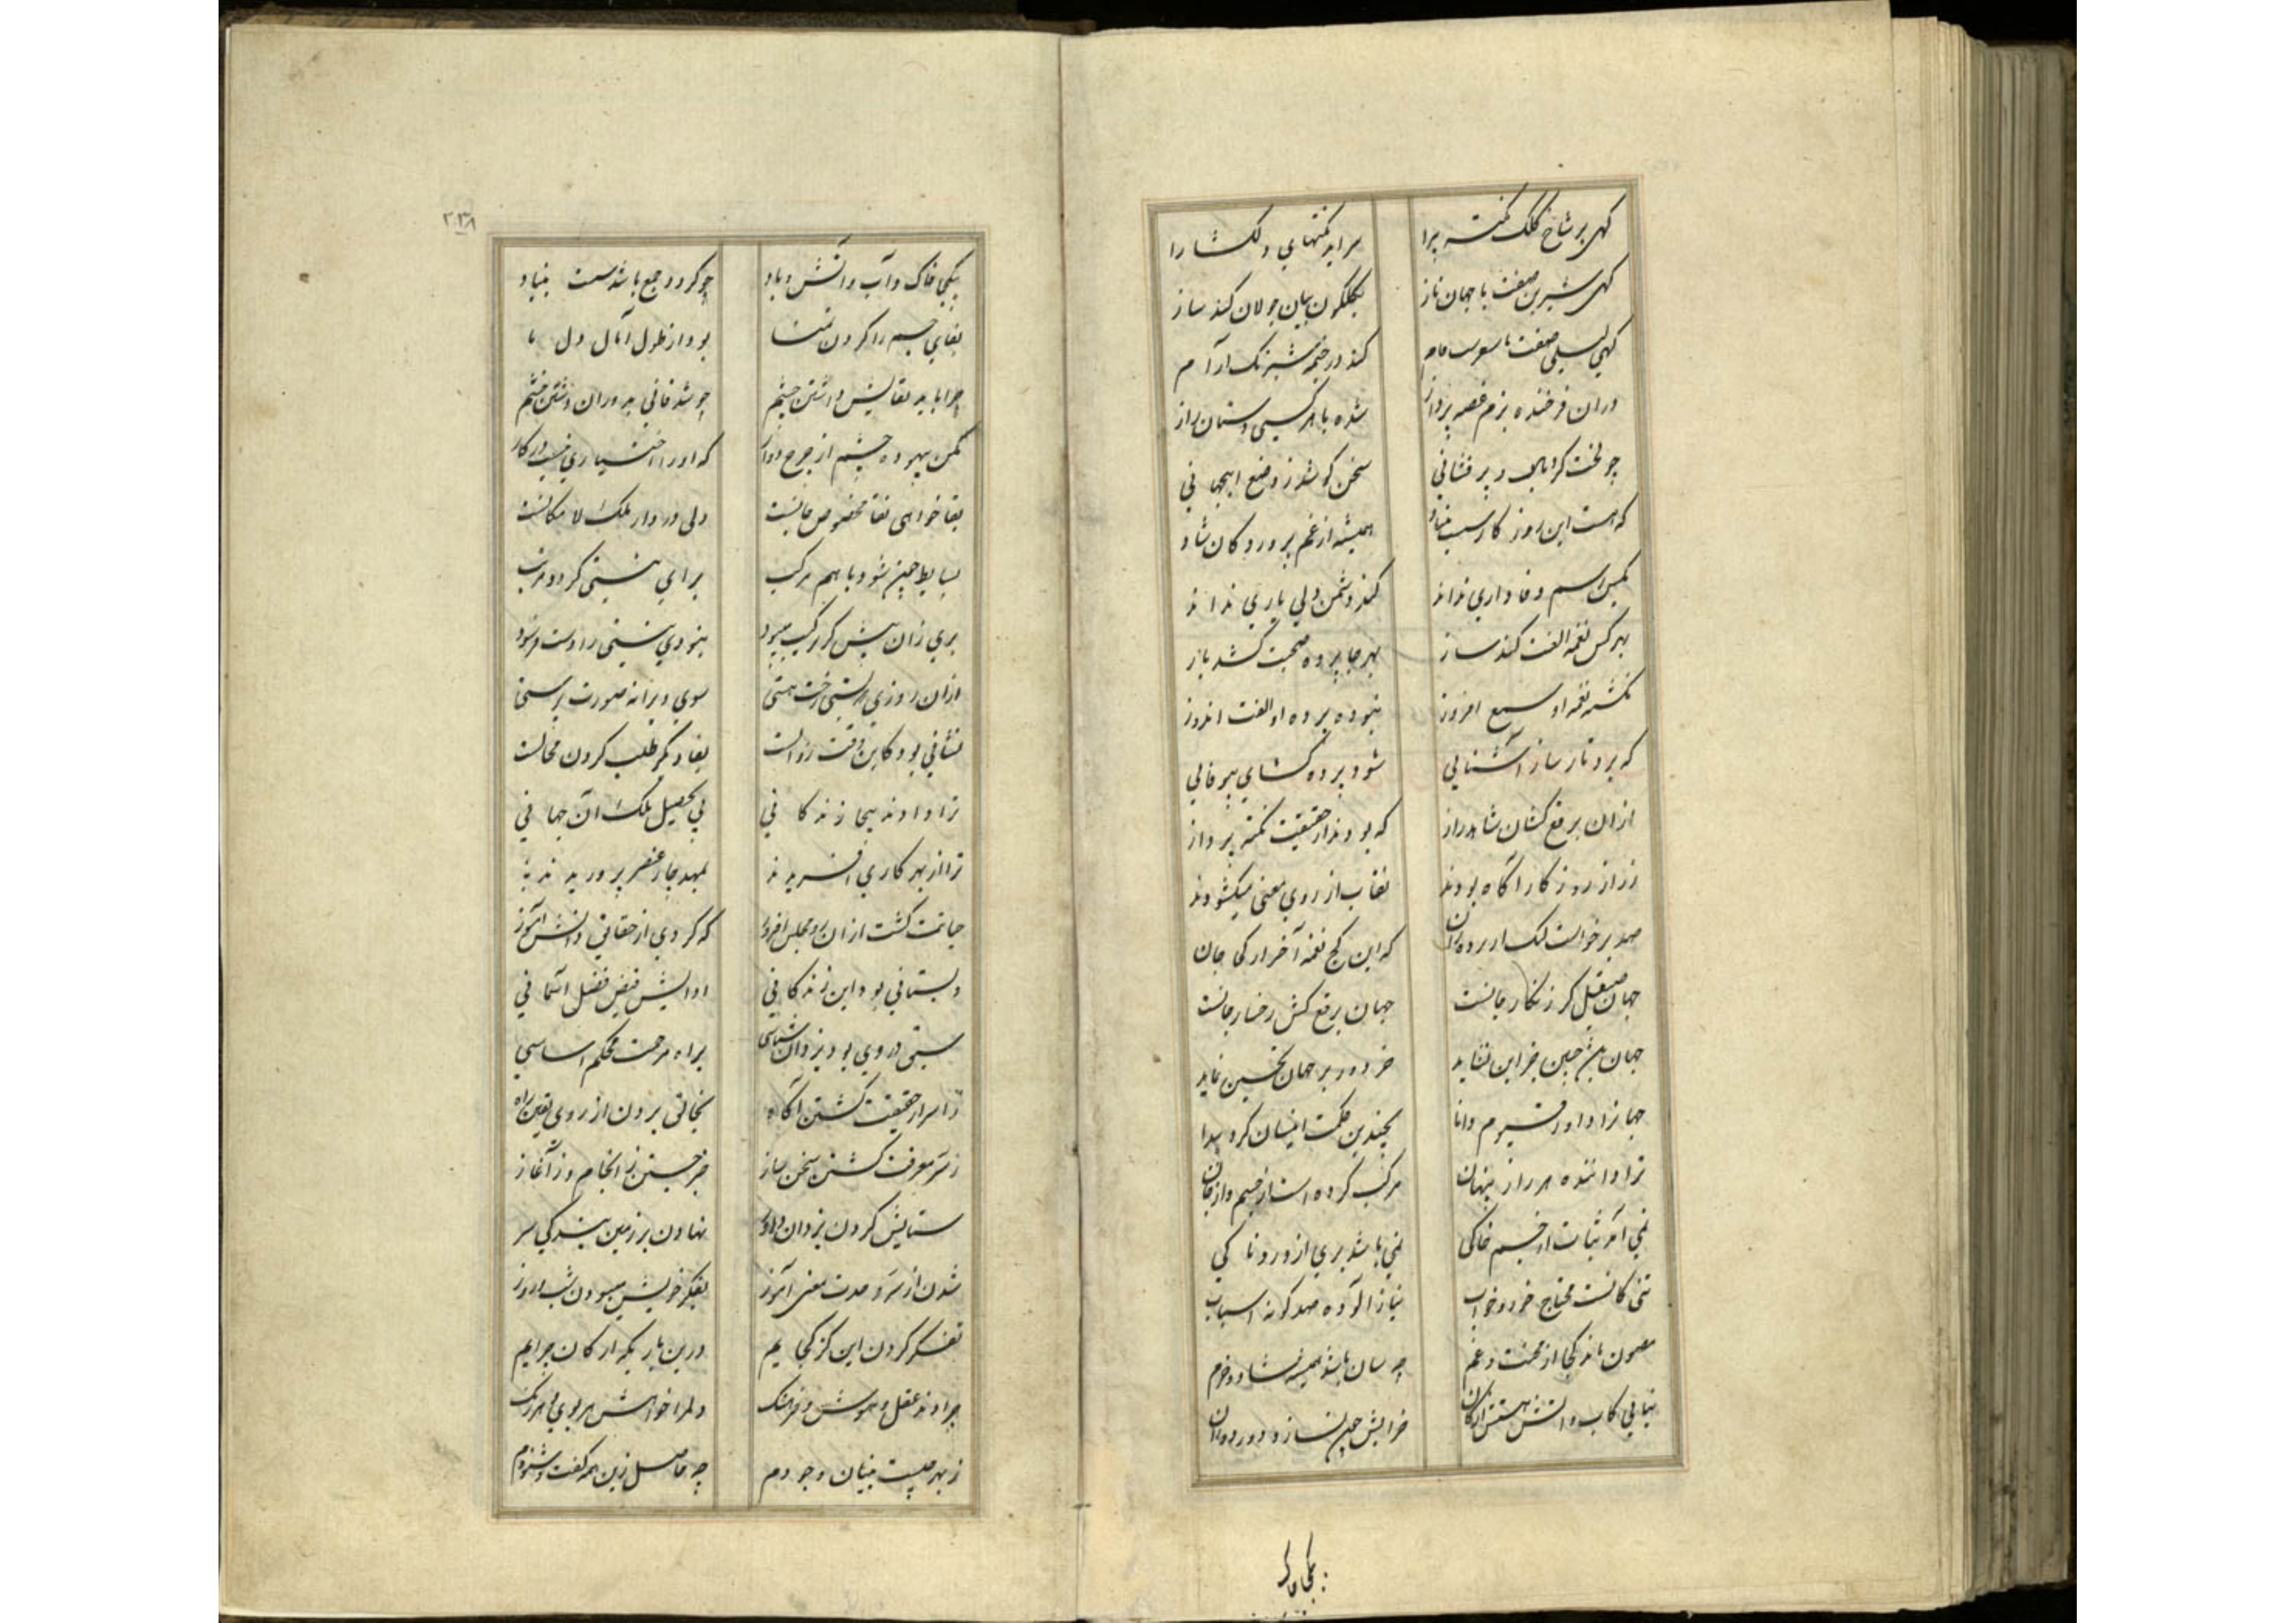 کهی بر شاخ کلک نکته پیرا سراید نکتهای دلکشا را
کهی شیرین صفت با جهان ناز بکلکون بیان جولان کند ساز
کهی لیلی صفت با کند در خیمه شبرنک آرام
دران فرخنده بزم قصه پرداز شده با هر کسی دستان راز
چو سخن کو شد ز وضع اینجهانی
که هست این روزکار سست بنیاد همیشه از غم پروردکان شاد
کمین اسم وفاداری نداند کند دشمن دلی یاری نداند
بهر کس نغمه الفت کند ساز بهر جا پرده صحبت کشد باز
نکشته نغمه او سمع افروز نبوده پرده او الفت اندوز
که بر تار ساز آشنایی شود پرده کشای بیوفایی
ازان برقع کشان شاهد راز که بودند از حقیقت نکته پرداز
ز راز روزکار آکاه بودند نقاب از روی معنی میکشودند
که این کج نغمه آخر ارکی جان
جهان صیقل کر زنکار جانست جهان برقع کش رخسار جانست
جهان بیش چنین جز این نشاید خردور بر جهان تحسین نماید
جهانرا داور قیوم دانا بچندین حکمت انسان کرد پیدا
ترا داننده هر راز پنهان مرکب کرده است از جسم و از جان
نمی آمد ثبات از جسم خاکی نمی باشد بری از دردناکی
تنی کانست محتاج خور و خواب نیاز آلوده صد کونه اسباب
مصون ماند کجا از محنت و غم چه سان باشد همیشه شاد و خرم
بنایی کاب و آتش هستش ارکان خرابش چون نسازد دور دوران
بیکجا خاک
۲۳۸
بیکجا خاک و آب و آتش و باد چو کردد جمع باشد سست بنیاد
بقای جسم را کردن تمنا بود از طول آمال دل ما
چرا باید بقایش داشتن چشم چو شد فانی بدوران داشتن خشم
مکن بیهوده چشم از چرخ دوار که او را اختیاری نیست در کار
بقا خواهی بقا مخصوص جانست ولی در دار ملک لامکانست
بسایط چون شود با هم مرکب برای نیستی کردد مرتب
بری زان پیش کز ترکیب میبود نبودی نیستی را دست فرسود
ازان روزی که بستی رخت هستی سوی ویرانه صورت پرستی
نشانی بود کاین وقت زوالست بقا دیکر طلب کردن محالست
ترا دادند اینجا زندکانی پی تحصیل ملک آن جهانی
ترا از بهر کاری آفریدند بمهد چار عنصر پروریدند
حیاتت کشت ازان رو مجلس افروز که کردی از حقایق دانش آموز
دبستانی بود این زندکانی ادایش فیض فضل آسمانی
سبق در وی بود یزدان شناسی براه مرحمت محکم اساسی
ز اسرار حقیقت کشتن آکاه بخالق بردن از روی یقین راه
ز سر معرفت کشتن سخن ساز خبر جستن ز انجام و ز آغاز
ستایش کردن یزدان داور نهادن بر زمین بندکی سر
شدن از سر وحدت معنی آموز بفکر خویش میبودن شب و روز
تفکر کردن این کز کجاییم درین باریکه ارکان چراییم
چرا دادند عقل و هوش و فرهنک دلم را خواهش هر بوی و هر رنک
ز بهر چیست بنیان وجودم چه حاصل زین همه کفت و شنودم